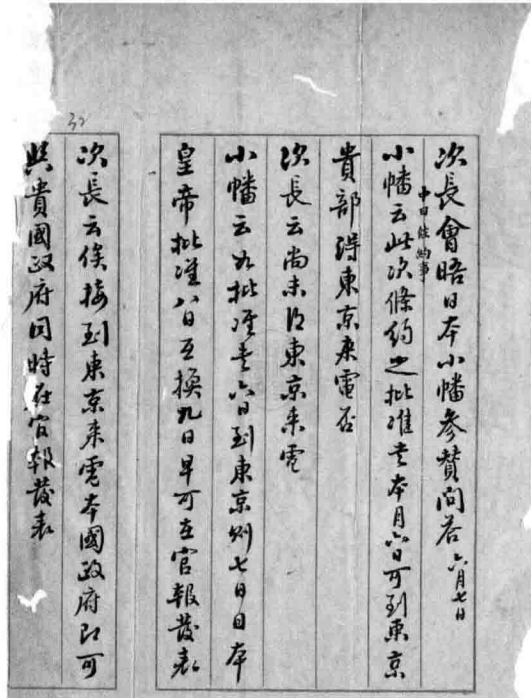 次長會晤日本小幡參贊問答 六月七日
中日條約事
小幡云此次條約之批准書本月六日可到東京
貴部得東京來電否
次長云尚未得東京來電
小幡云如批准書六日到東京則七日日本
皇帝批准八日互換九日早可在官報發表
次長云俟接到東京來電本國政府即可
與貴國政府同時在官報發表
32